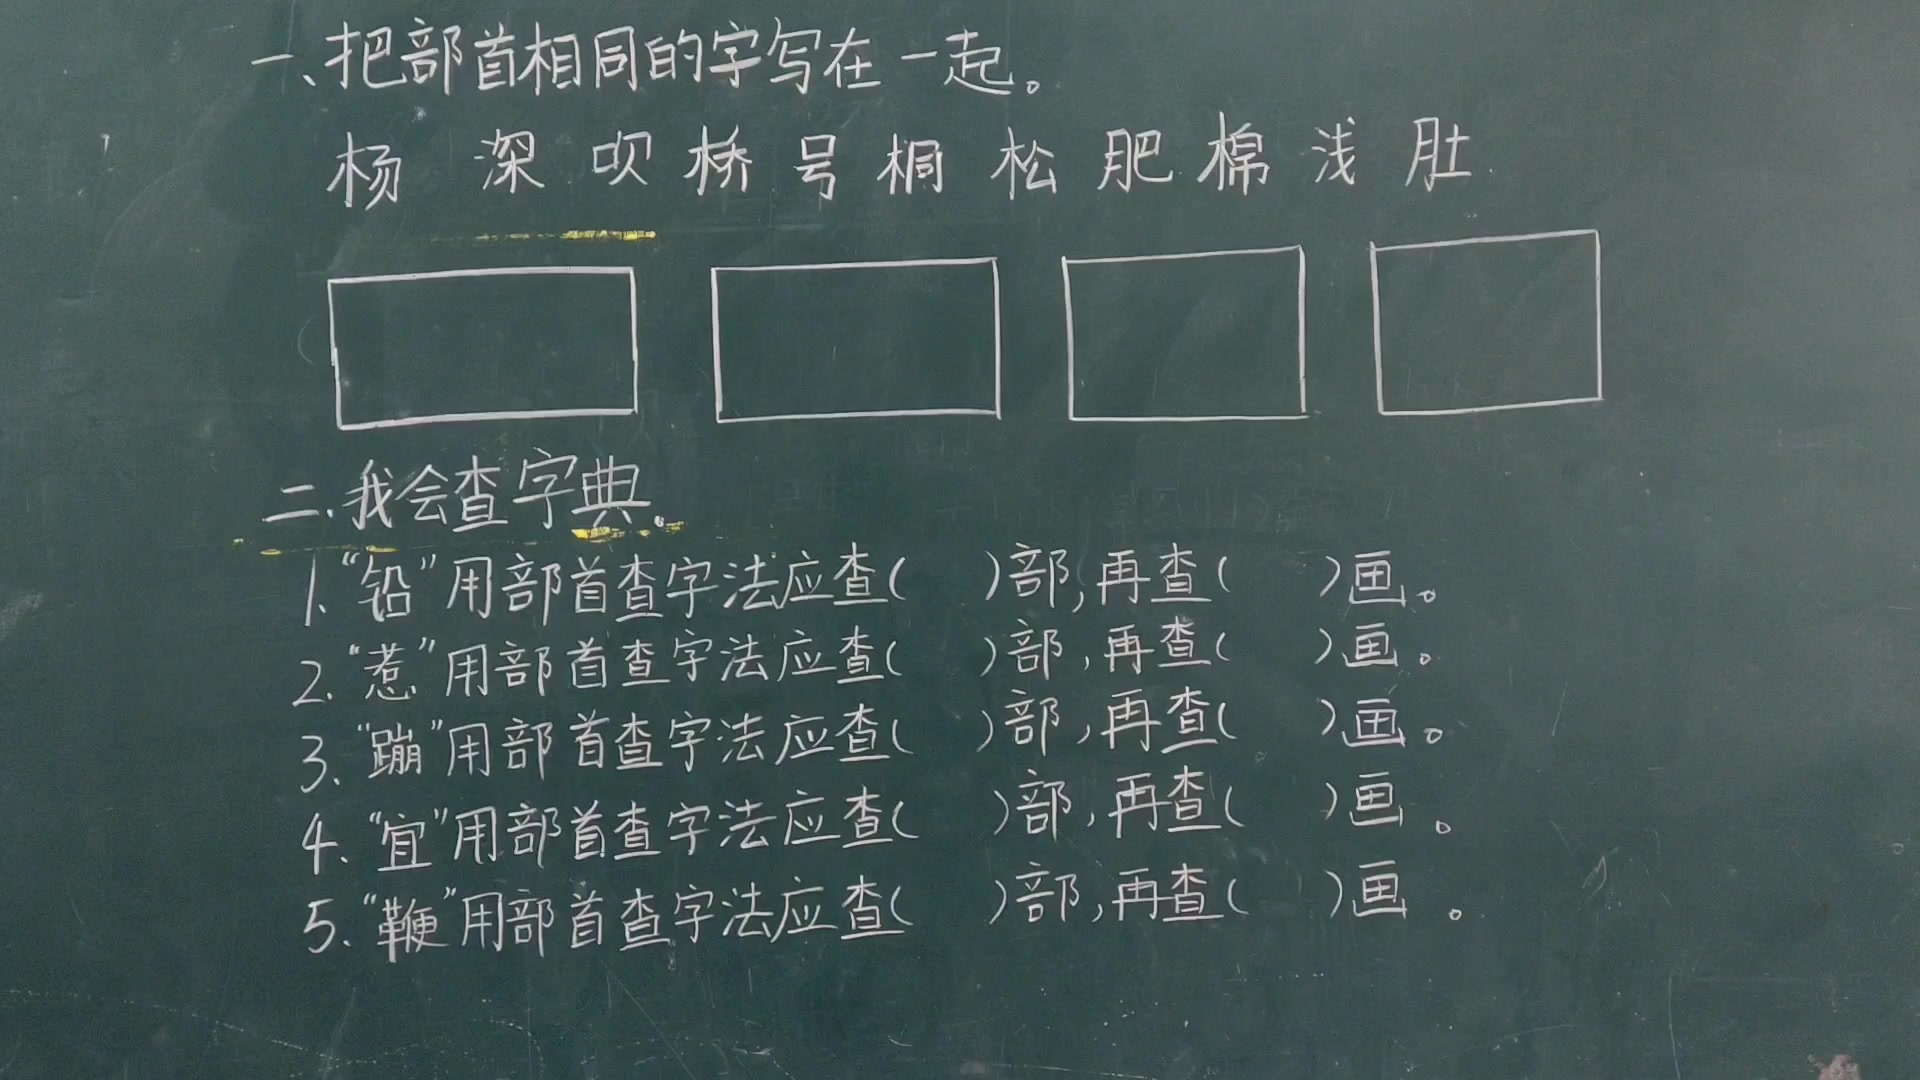 一、把部首相同的字写在一起。
杨 深 呗 桥 号 桐 松 肥 棉 浅 肚
二、我会查字典。
1. “铅”用部首查字法应查( )部,再查( )画。
2. “惹”用部首查字法应查( )部,再查( )画。
3. “蹦”用部首查字法应查( )部,再查( )画。
4. “宜”用部首查字法应查( )部,再查( )画。
5. “鞭”用部首查字法应查( )部,再查( )画。